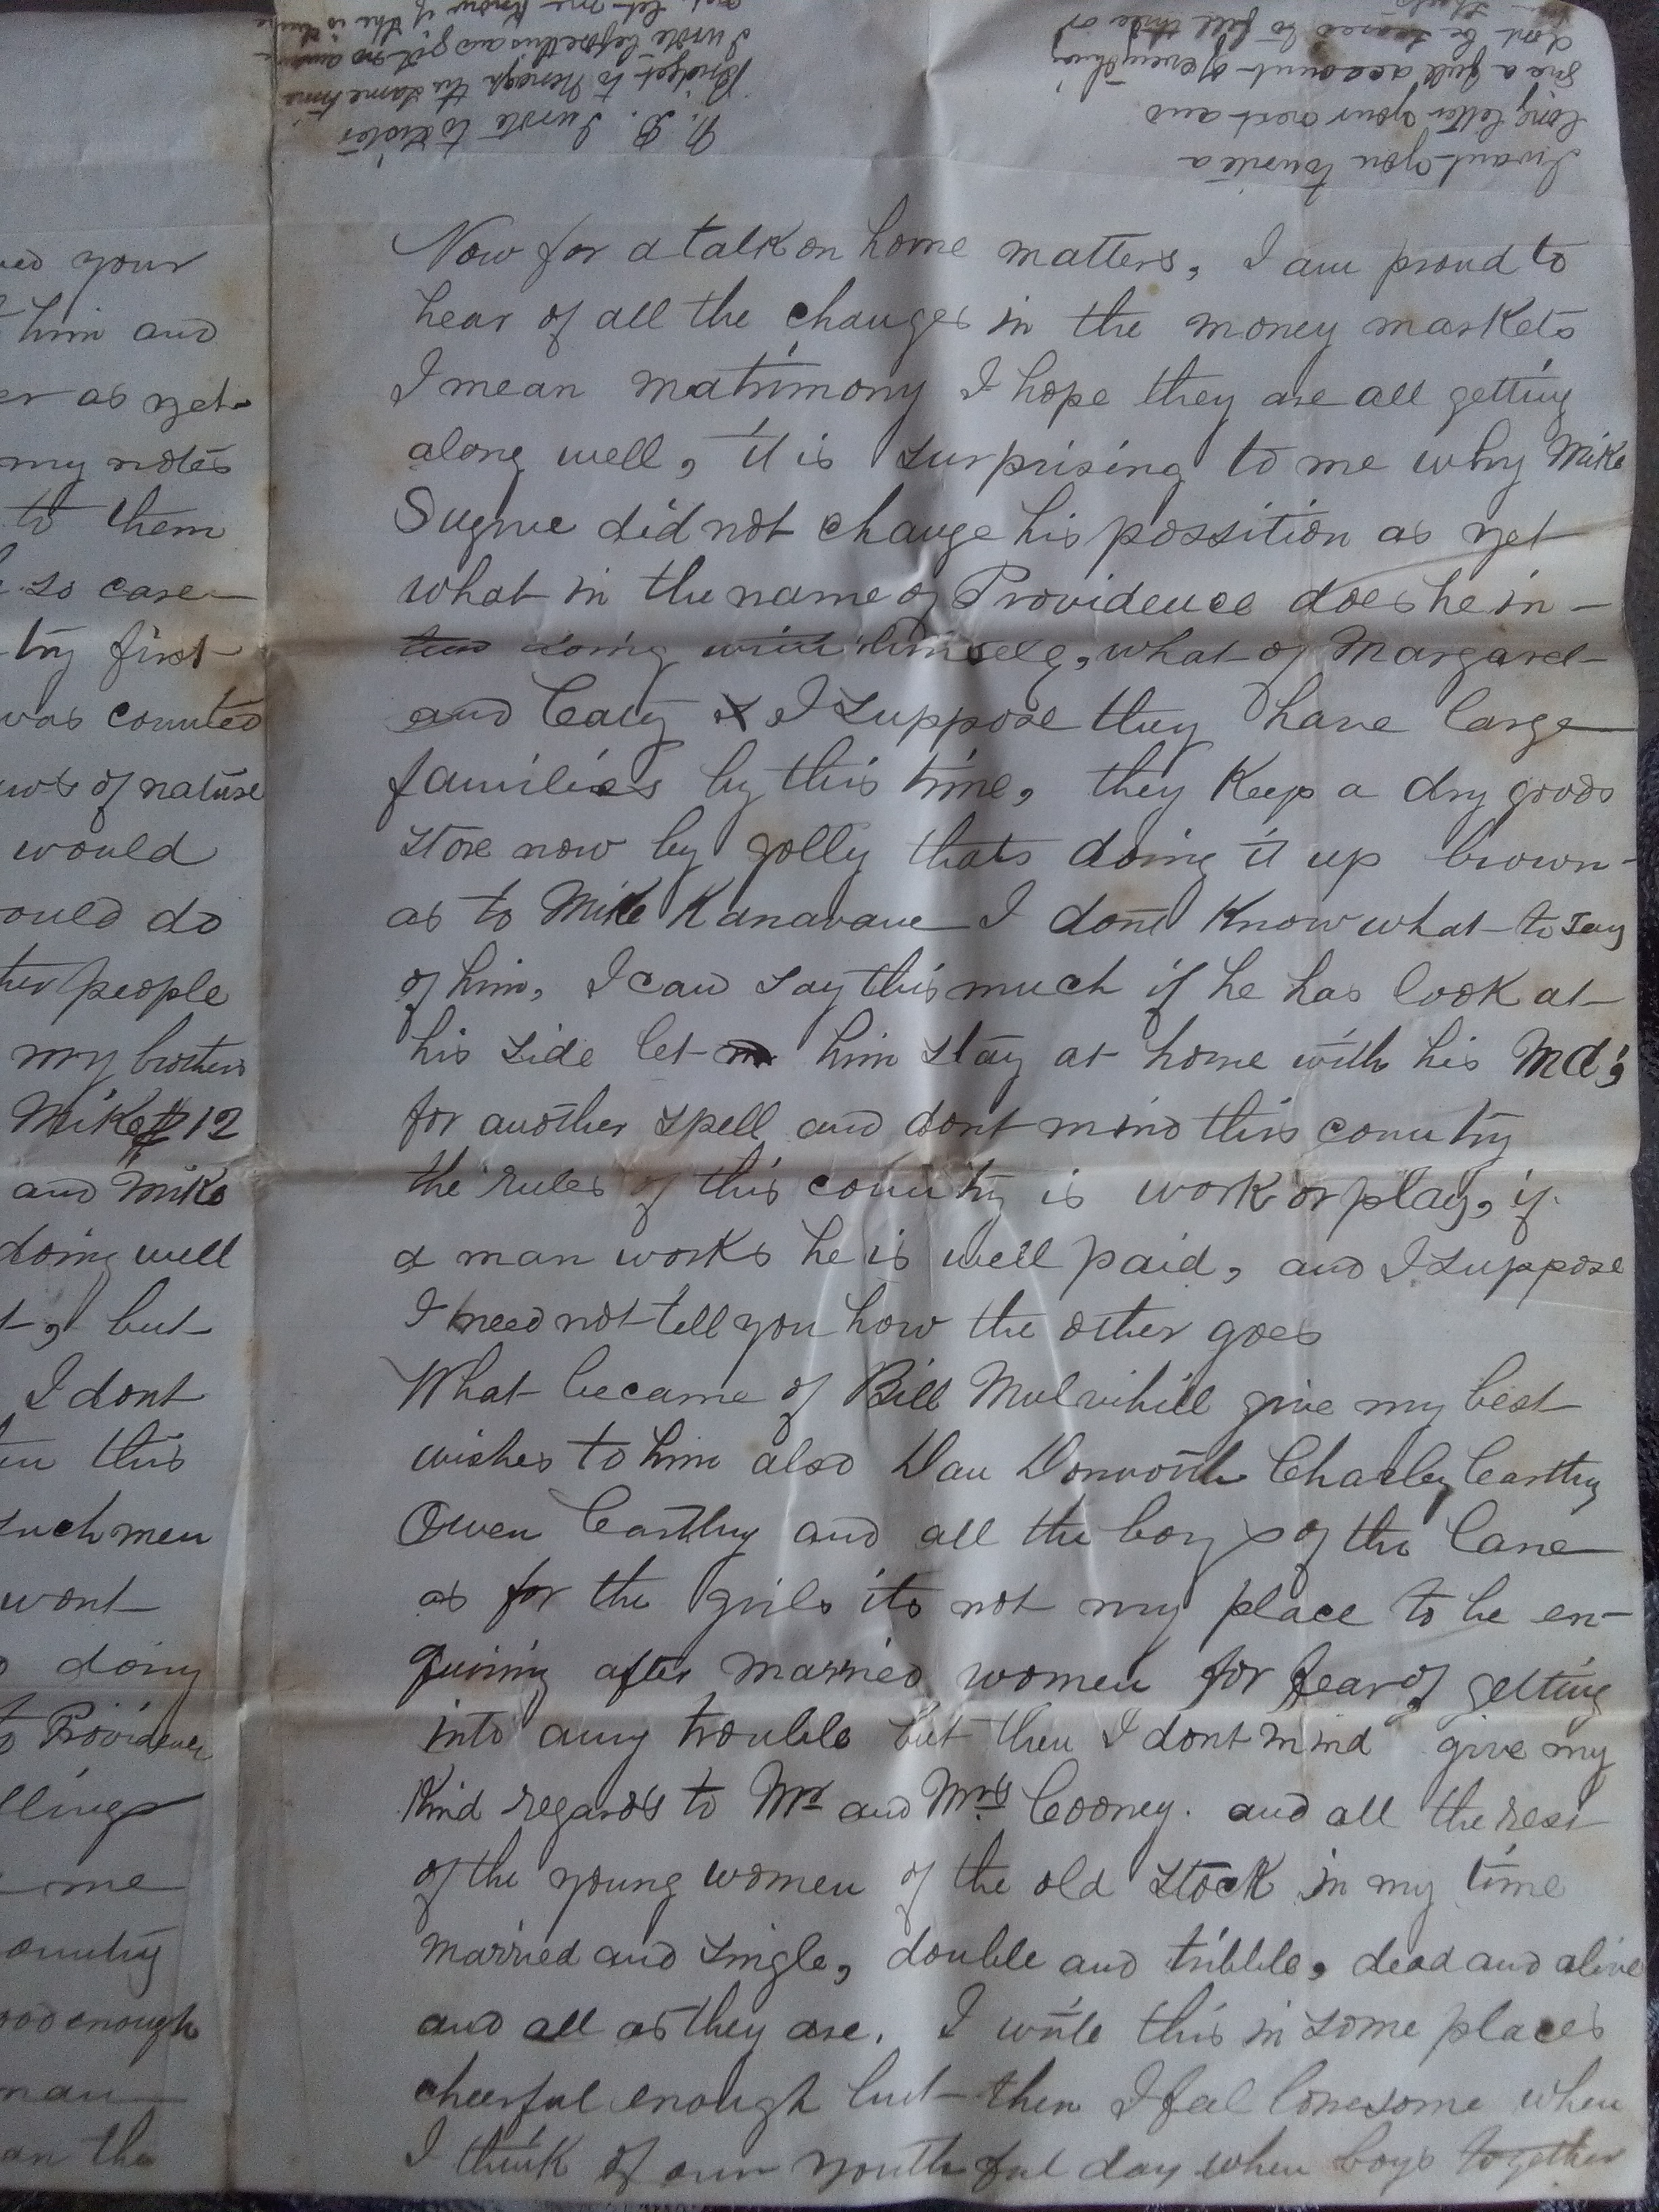 N. B. I wrote to sister
Bridget to Nenagh the same time
I wrote before this and got no answer
let me know if she is
I want you to write a
long letter your next and
give a full account of everything
dont be scared to fill three or
Now for a talk on home matters, I am proud to
hear of all the changes in the money markets
I mean matrimony I hope they are all getting
along well, it is surprising to me why Mike
Sugrue did not change his possition as yet
what in the name of Providence does he in-
tend doing with himself, what of Margaret
and Caty I suppose they have large
families by this time, they Keep a dry goods
store now by golly thats doing it up brown-
as to Mike Kanavane I dont Know what to say
of him, I can say this much if he has look at
his side let him stay at home with his Md;
for another spell and dont mind this country
the rules of this country is work or play, if
a man works he is well paid, and I suppose
I need not tell you how the other goes
What became of Bill Mulvihill give my best
wishes to him also Dan Charley Carthy
Owen Carthy and all the boys of the lane
as for the girls its not my place to be en-
quiring after married women for fear of getting
into any trouble but then I dont mind give my
Kind regards to Mr and Mrs Cooney. and all the rest
of the young women of the old stock in my time
married and single, double and tribble, dead and alive
and all as they are. I write this in some places
cheerful enough but then I feel lonesome when
I think of our youthful day when boys together
your
him and
er as yet
my notes
to them
so case
try first
was counted
aws of nature
would
ould do
people
my brothers
Mike $12
and Mike
doing well
but
I dont
this
such men
wont
doing
to Providence
llings
me
ountry
good enough
man
an the